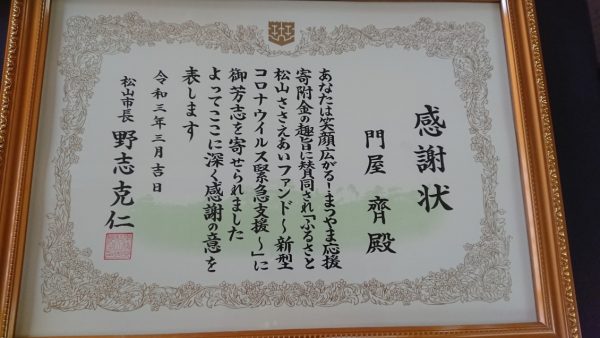 感謝状
門屋 齊 殿
あなたは笑顔広がる!まつやま応援
寄附金の趣旨に賛同され「ふるさと
松山ささえあいファンド～新型
コロナウイルス緊急支援～」に
御芳志を寄せられました
よってここに深く感謝の意を
表します
令和三年三月吉日
松山市長 野志克仁